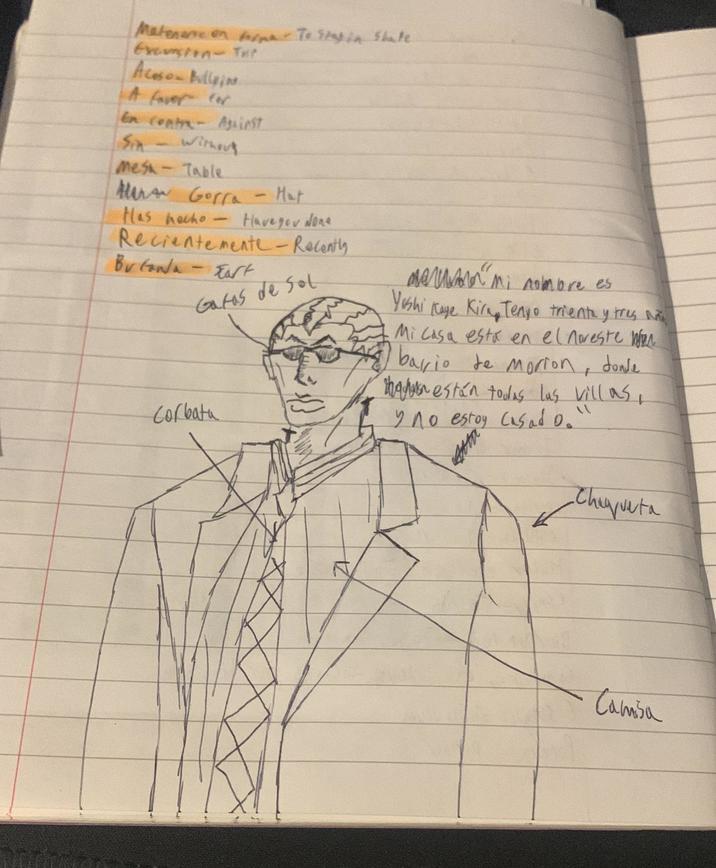 Matenerse en forma - To Stay in Shape
Excursion - Trip
Acoso - Bullying
A favor - For
En contra - Against
Sin - Without
Mesa - Table
Gorra - Hat
Has hecho - Have you done
Recientemente - Recently
Bufanda -
Gafas de sol
"Mi nombre es
Yoshikage Kira, Tengo trienta y tres años
Mi casa está en el noreste
barrio de Morion, donde
están todas las villas,
y no estoy casado."
Corbata
Chaqueta
Camisa